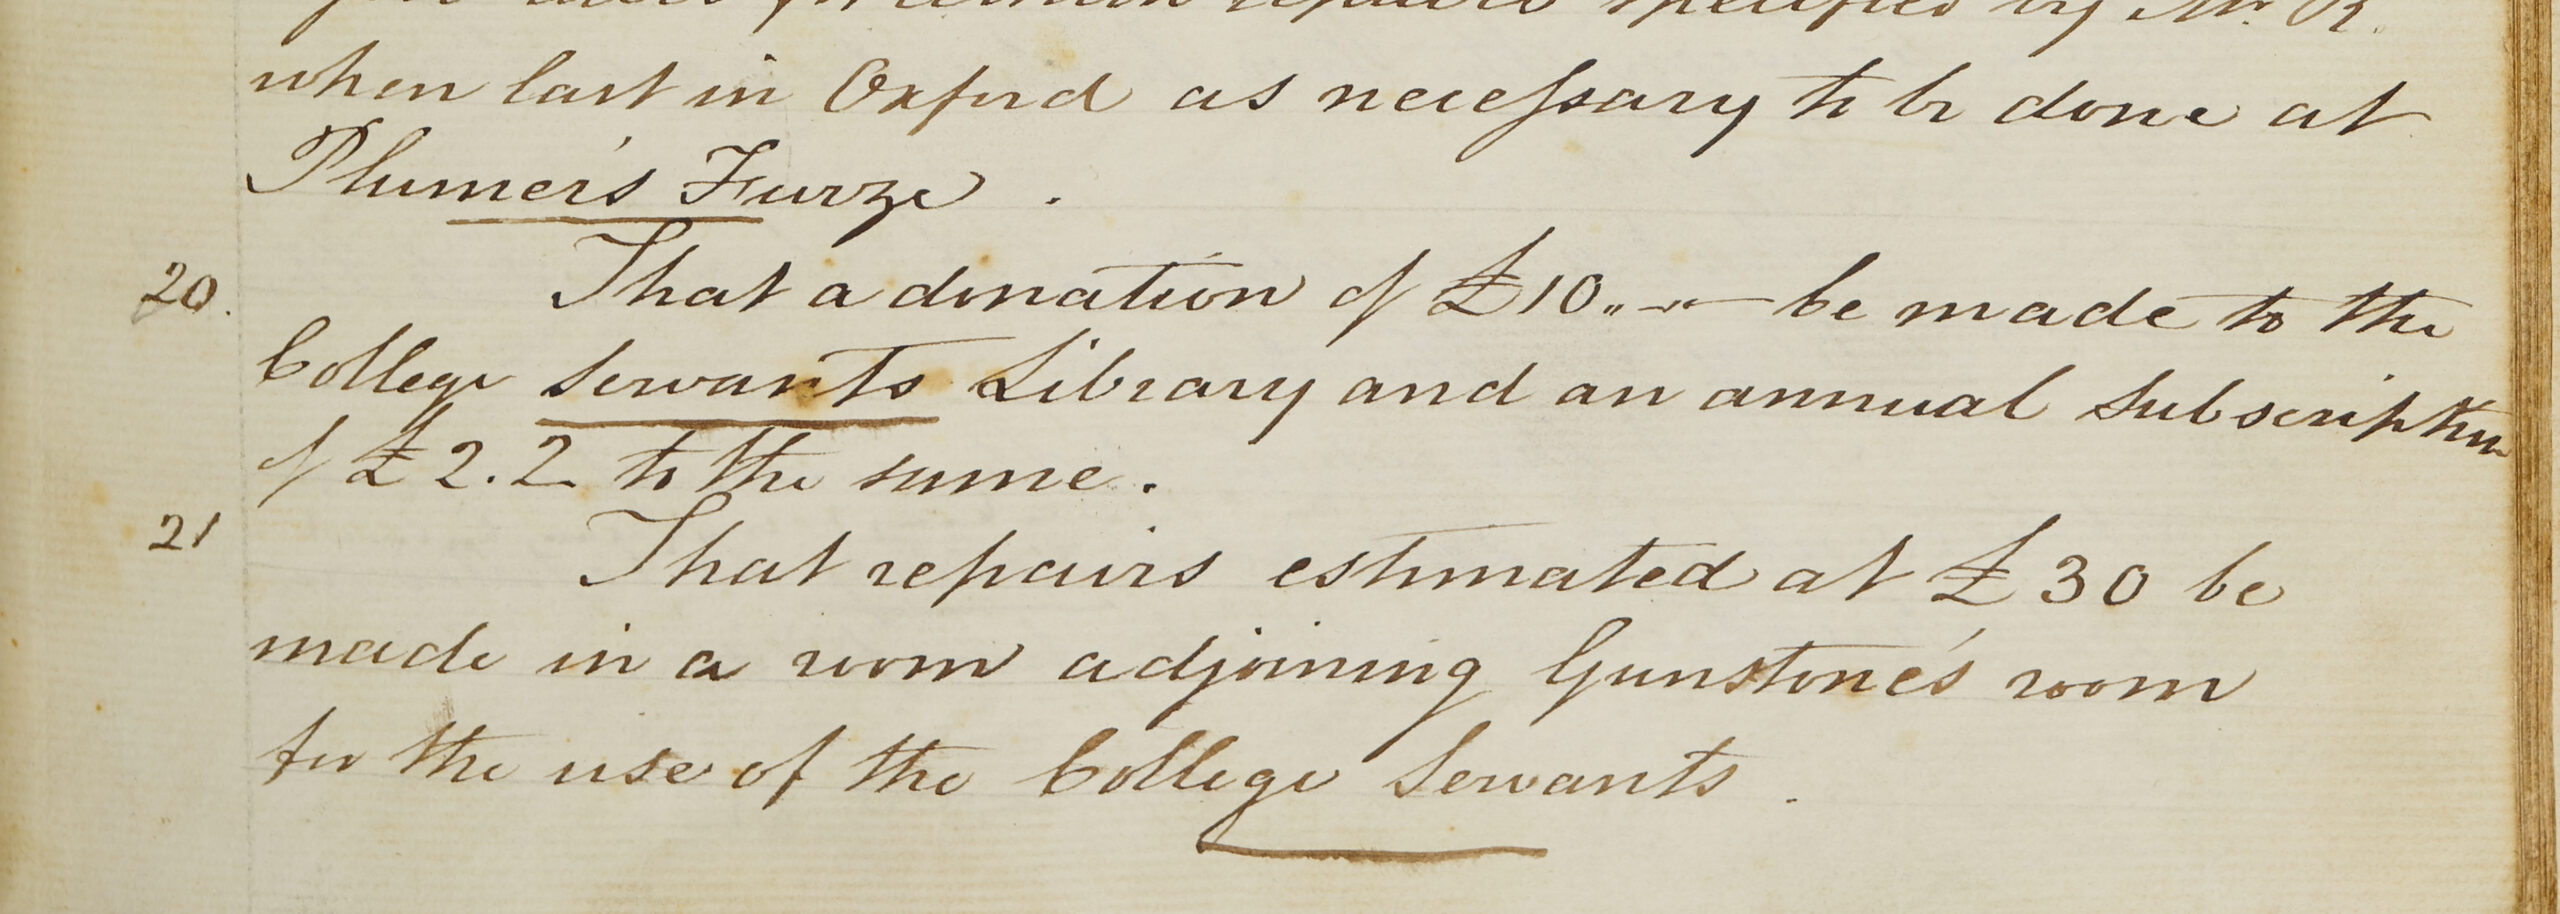 for certain repairs specified by Mr. R.
when last in Oxford as necessary to be done at
Plumer's Furze.
20. That a donation of £10„-„- be made to the
College Servants Library and an annual subscription
of £2.2 to the same.
21 That repairs estimated at £30 be
made in a room adjoining Gunstone's room
for the use of the College Servants.